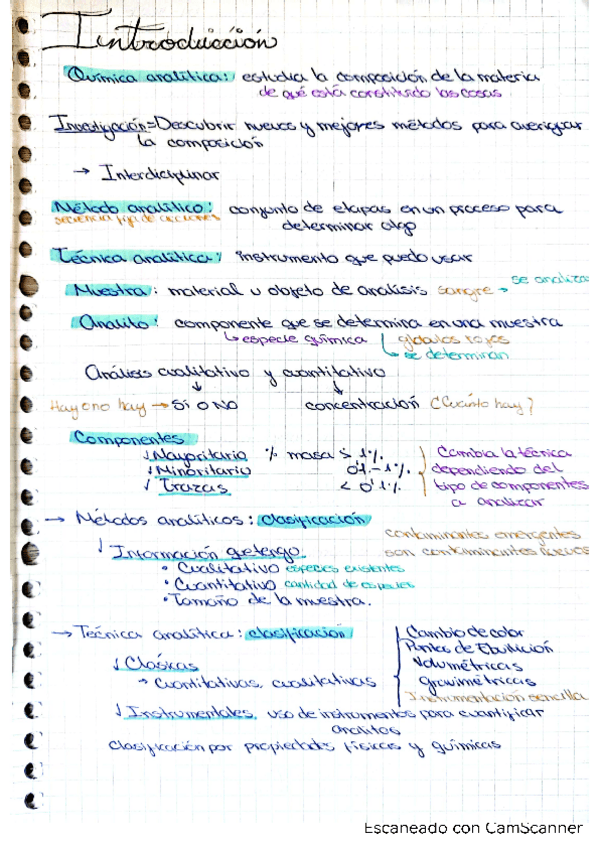 Introducción
Química analítica: estudia la composición de la materia
de qué está constituido las cosas
Investigación = Descubrir nuevos y mejores métodos para averiguar
la composición
→ Interdiciplinar
Método analítico: conjunto de etapas en un proceso para
secuencia fija de acciones determinar algo
Técnica analítica: instrumento que puedo usar
Muestra: material u objeto de análisis sangre → se analiza
Analito: componente que se determina en una muestra
↳ especie química glóbulos rojos
↳ se determinan
Análisis cualitativo y cuantitativo
Hay o no hay → Sí o No concentración ¿Cuánto hay?
Componentes
↓ Mayoritario % masa > 1%.
↓ Minoritario 0'1 - 1%.
↓ Trazas < 0'1%.
Cambia la técnica
dependiendo del
tipo de componentes
a analizar
→ Métodos analíticos: clasificación
contaminantes emergentes
son contaminantes nuevos
↓ Información que tengo.
• Cualitativo especies existentes
• Cuantitativo cantidad de especies
• Tamaño de la muestra.
→ Técnica analítica: clasificación
↓ Clásicas
→ Cuantitativas, cualitativas
Cambio de color
Puntos de Ebullición
Volumétricas
gravimétricas
Instrumentación sencilla
↓ Instrumentales, uso de instrumentos para cuantificar
analitos
Clasificación por propiedades físicas y químicas
Escaneado con CamScanner